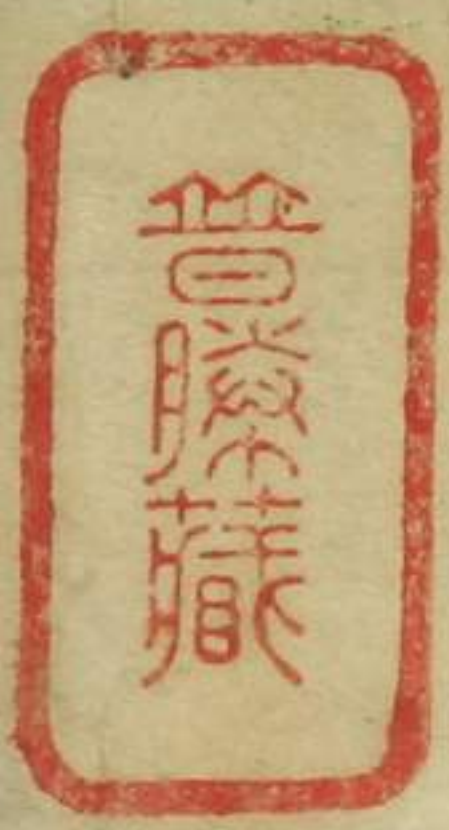 普勝藏